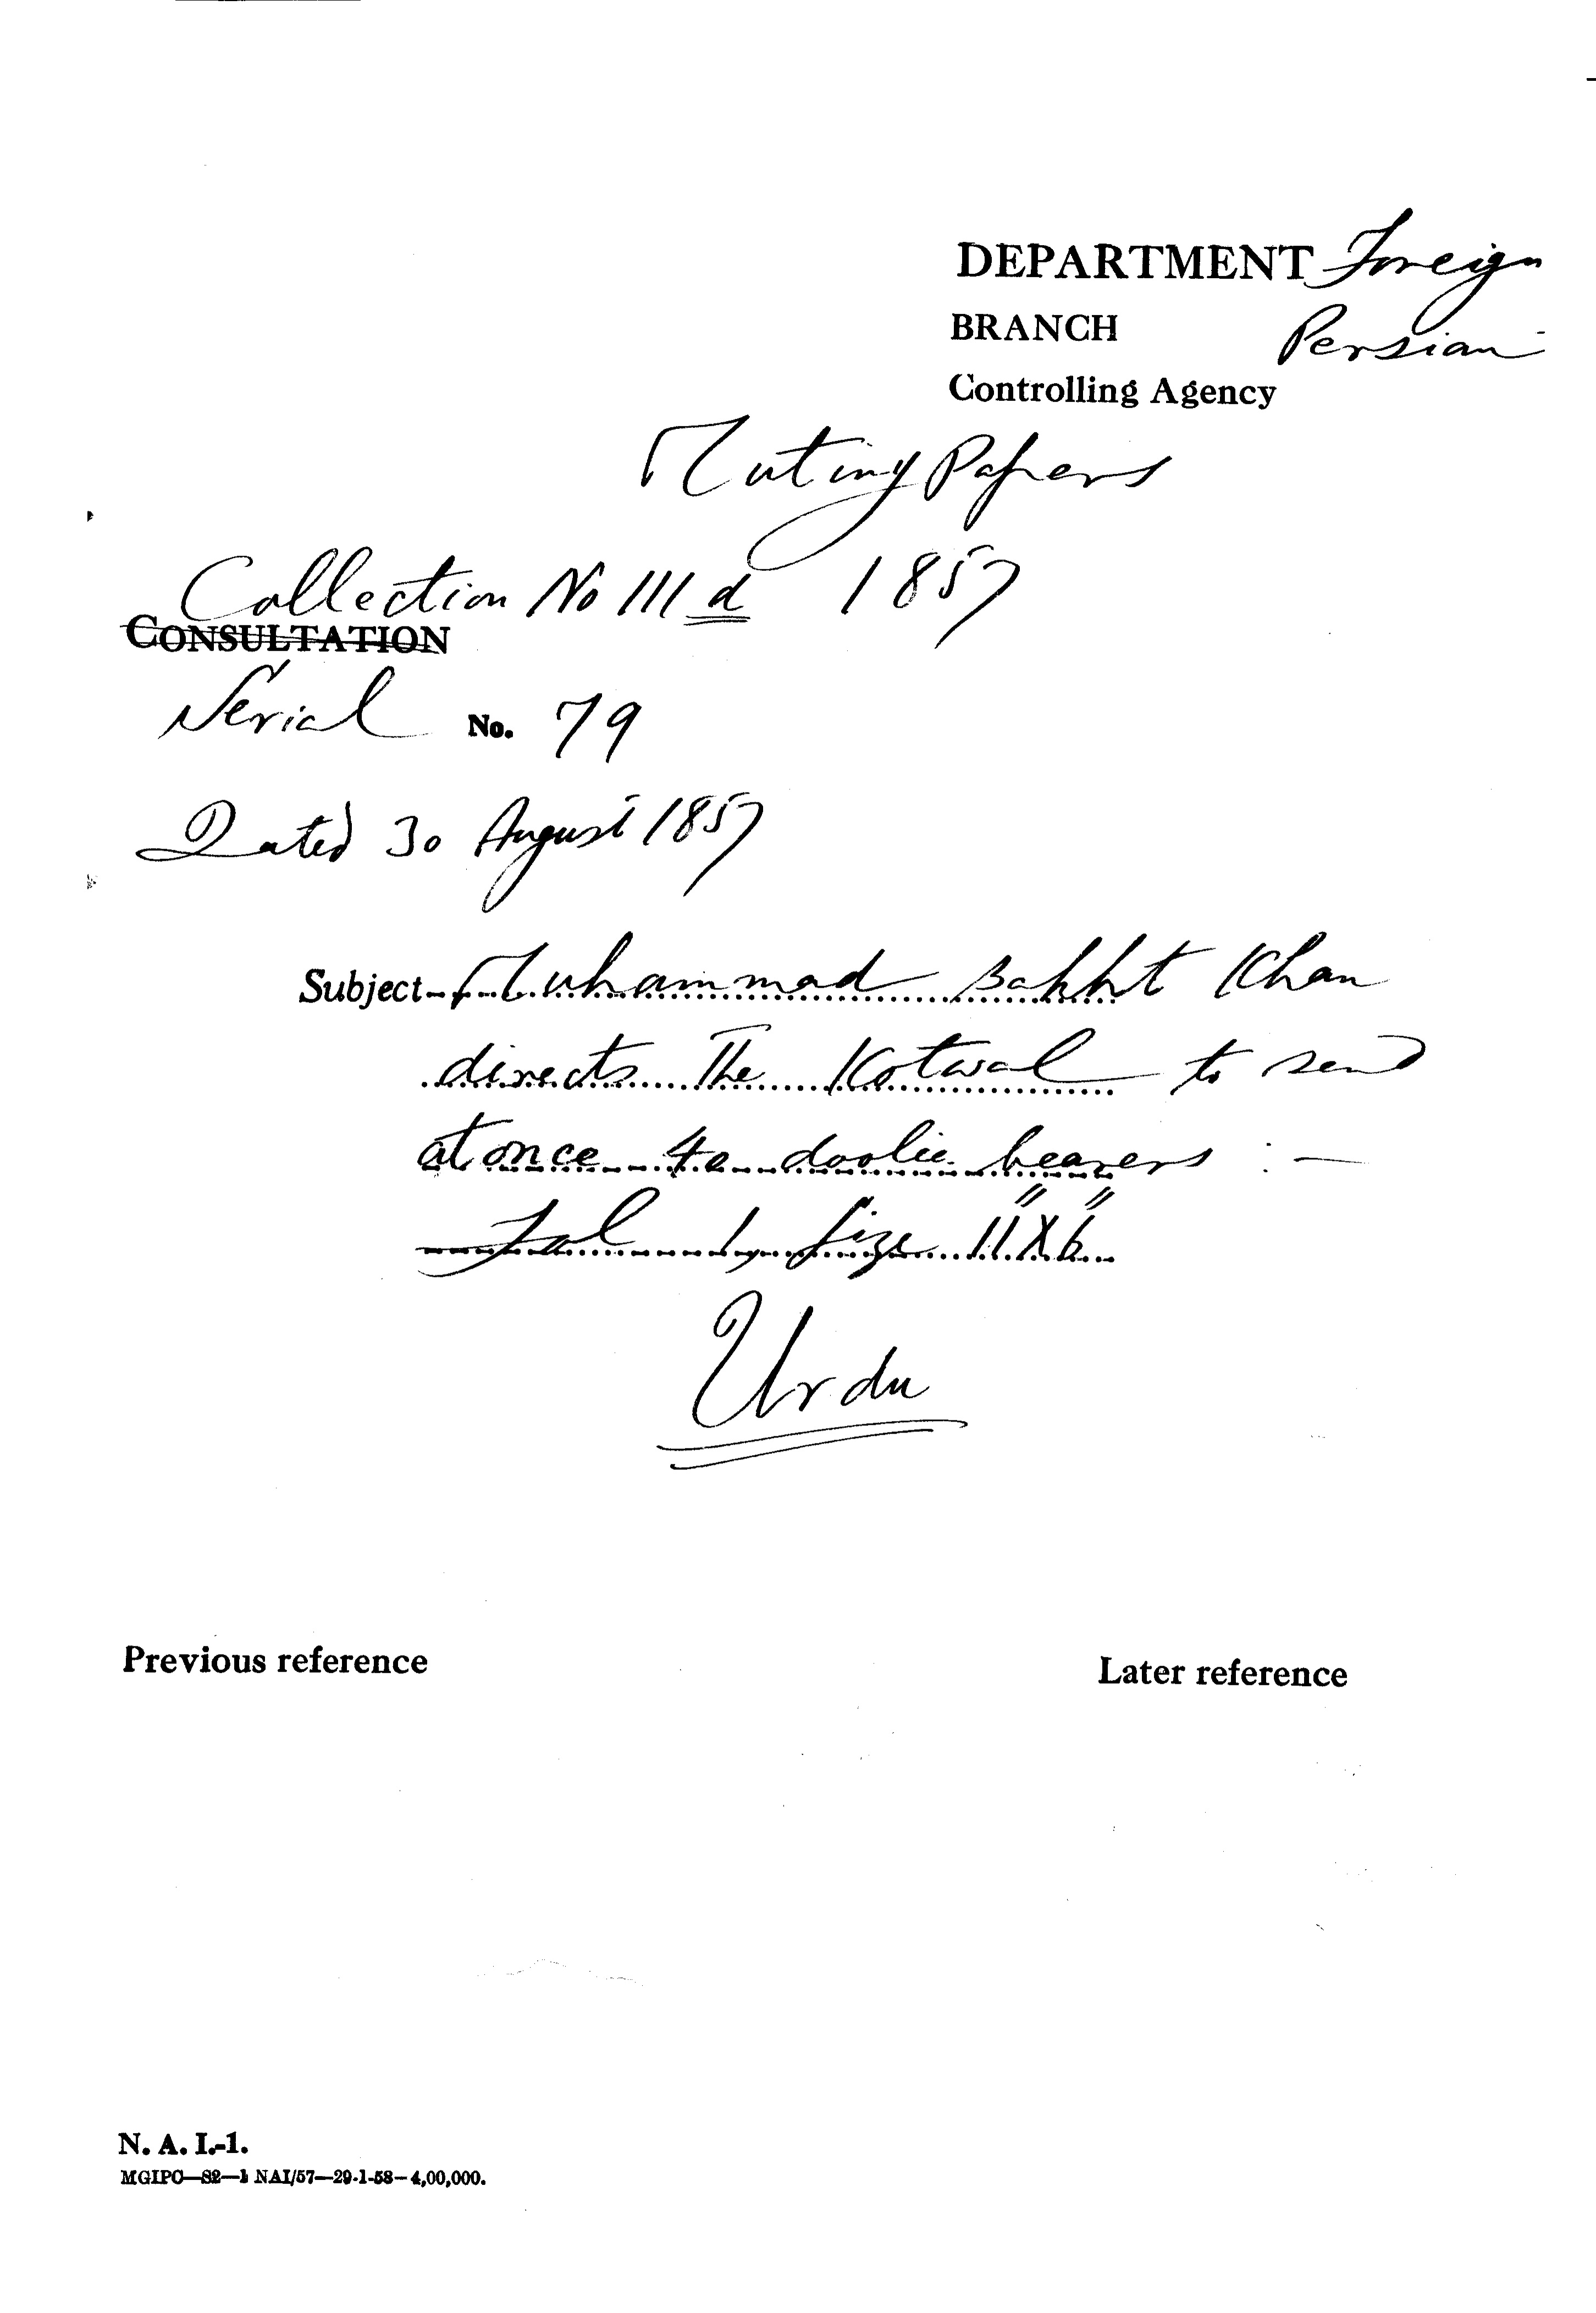 DEPARTMENT Foreign
BRANCH Persian
Controlling Agency
Mutiny Papers
Collection No III d 1857
CONSULTATION
Serial No. 79
Dated 30 August 1857
Subject Muhammad Bakht Khan
directs The Kotwal to send
at once 40 doolie bearers :—
Fol 1, Size 11" X 6"
Urdu
Previous reference
Later reference
N. A. I.-1.
MGIPC—S2—1 NAI/57—29-1-58—4,00,000.